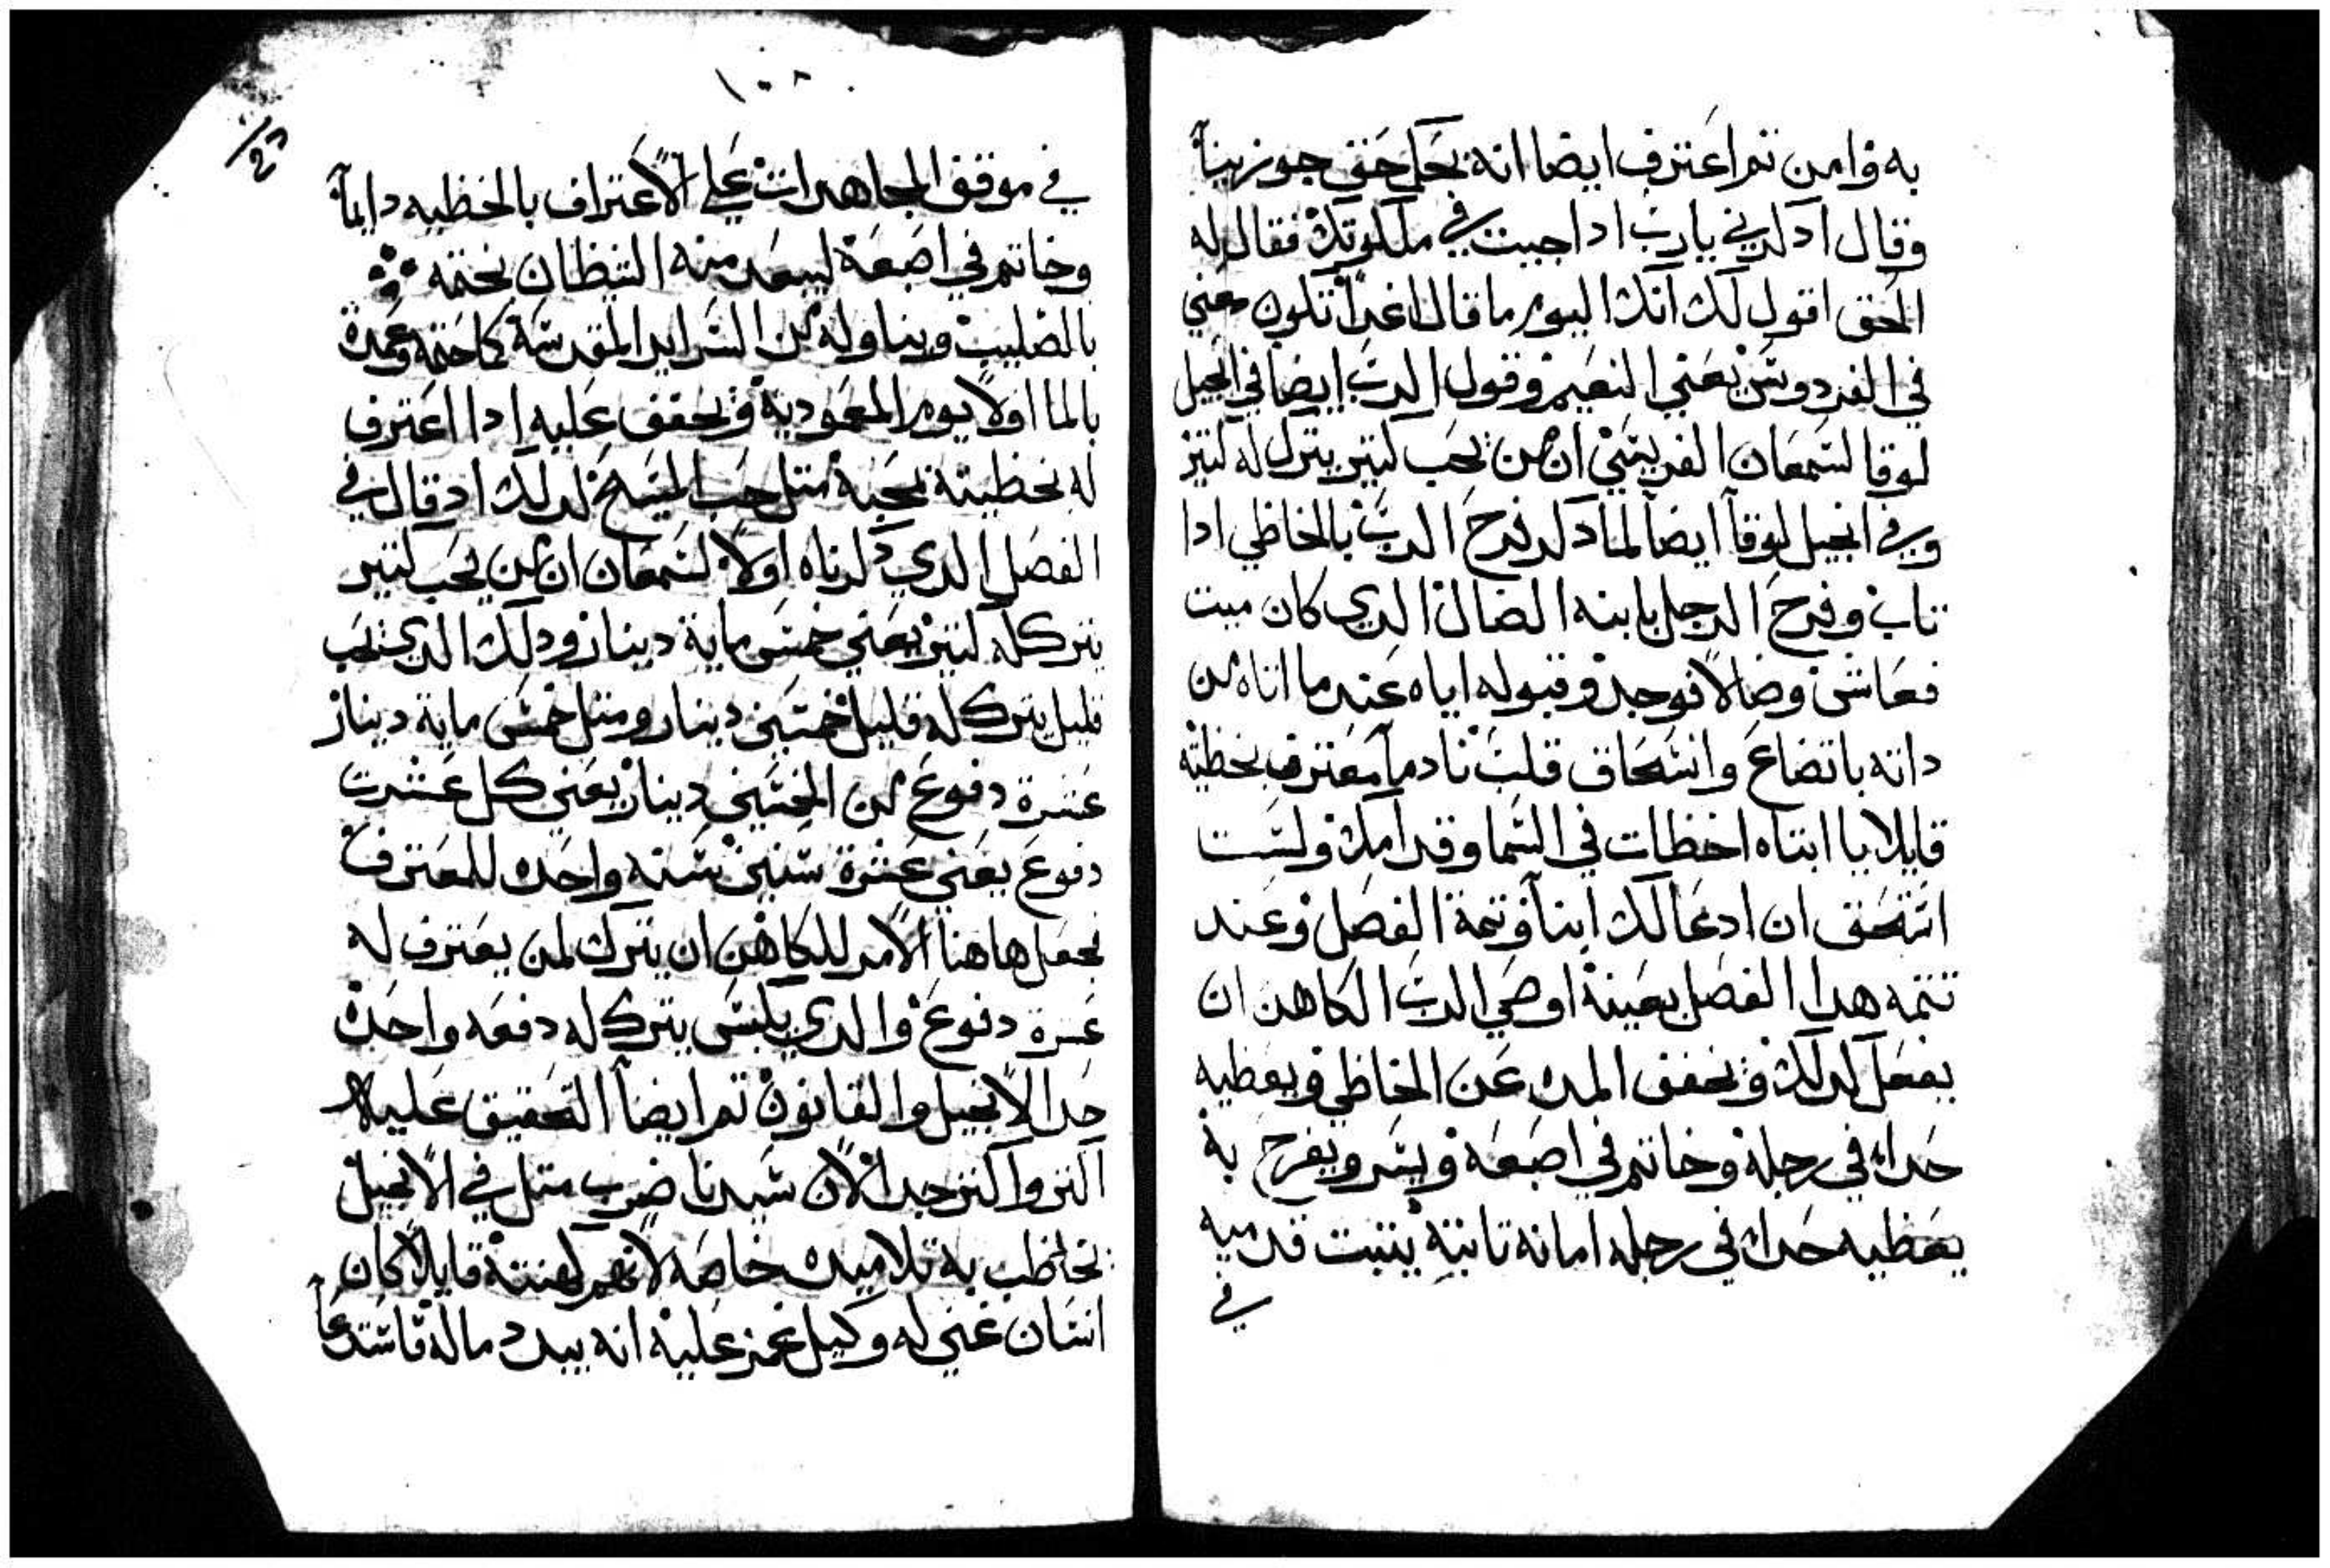 به وامن تم اعترف ايضا انه بكل حق جوزينا
وقال ادكرني يارب ادا جييت في ملكوتك فقال له
الحق اقول لك انك اليوم ما قال غدا تكون معي
في الفردوس يعني النعيم وقول الرب ايضا في انجيل
لوقا لسمعان الفريسي ان من يحب كتير يترك له كتير
وفي انجيل لوقا ايضا لما دكر فرح الرب بالخاطي ادا
تاب وفرح الرجل بابنه الضال الدي كان ميت
فعاش وضالا فوجد وقبوله اياه عند ما اتاه من
داته باتضاع وانسحاق قلب نادما معترف بخطيته
قايلا يا ابتاه اخطات في السما وقدامك ولست
استحق ان ادعا لك ابنا وتتمة الفصل وعند
تتمه هدا الفصل بعينه اوصي الرب الكاهن ان
يفعل كدلك ويخفف المده عن الخاطي ويعطيه
حدا في رجله وخاتم في اصبعه ويسر ويفرح به
يعطيه حدا في رجله امانه تابته يتبت قدميه
في
١٠٨
في موقف المجاهدات علي الاعتراف بالخطيه دايما
وخاتم في اصبعه ليبعد منه الشيطان بختمه
بالصليب ويناوله من السراير المقدسة كما ختمه وعمده
بالما اولا يوم المعمودية ويخفف عليه ادا اعترف
له بخطيته بمحبة متل حب المسيح لدلك اد قال في
الفصل الدي دكرناه اولا لسمعان ان من يحب كتير
يترك له كتير يعني خمس ماية دينار ودلك الدي يحب
قليل يترك له قليل خمسين دينار ومتل خمس ماية دينار
عشرة دفوع من الخمسين دينار يعني كل عشرت
دفوع يعني عشرة سنين سنه واحده للمعترف
يجعل هاهنا الامر للكاهن ان يترك لمن يعترف له
عشرة دفوع والدي يترك له دفعه واحده
حد الانجيل والقانون تم ايضا التحقيق عليه
اكتر واكتر جدا لان سيدنا ضرب متل في الانجيل
يخاطب به تلاميده خاصه لانهم كهنته قايلا كان
انسان غني له وكيل غمز عليه انه يبدد ماله فاستدعا